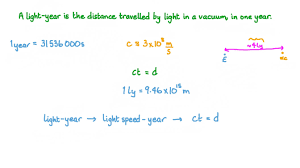 A light-year is the distance travelled by light in a vacuum, in one year.
1 year = 31 536 000 s
c = 3 × 10⁸ m/s
~4 ly
ct = d
1 ly = 9.46 × 10¹⁵ m
light-year → light speed-year → ct = d